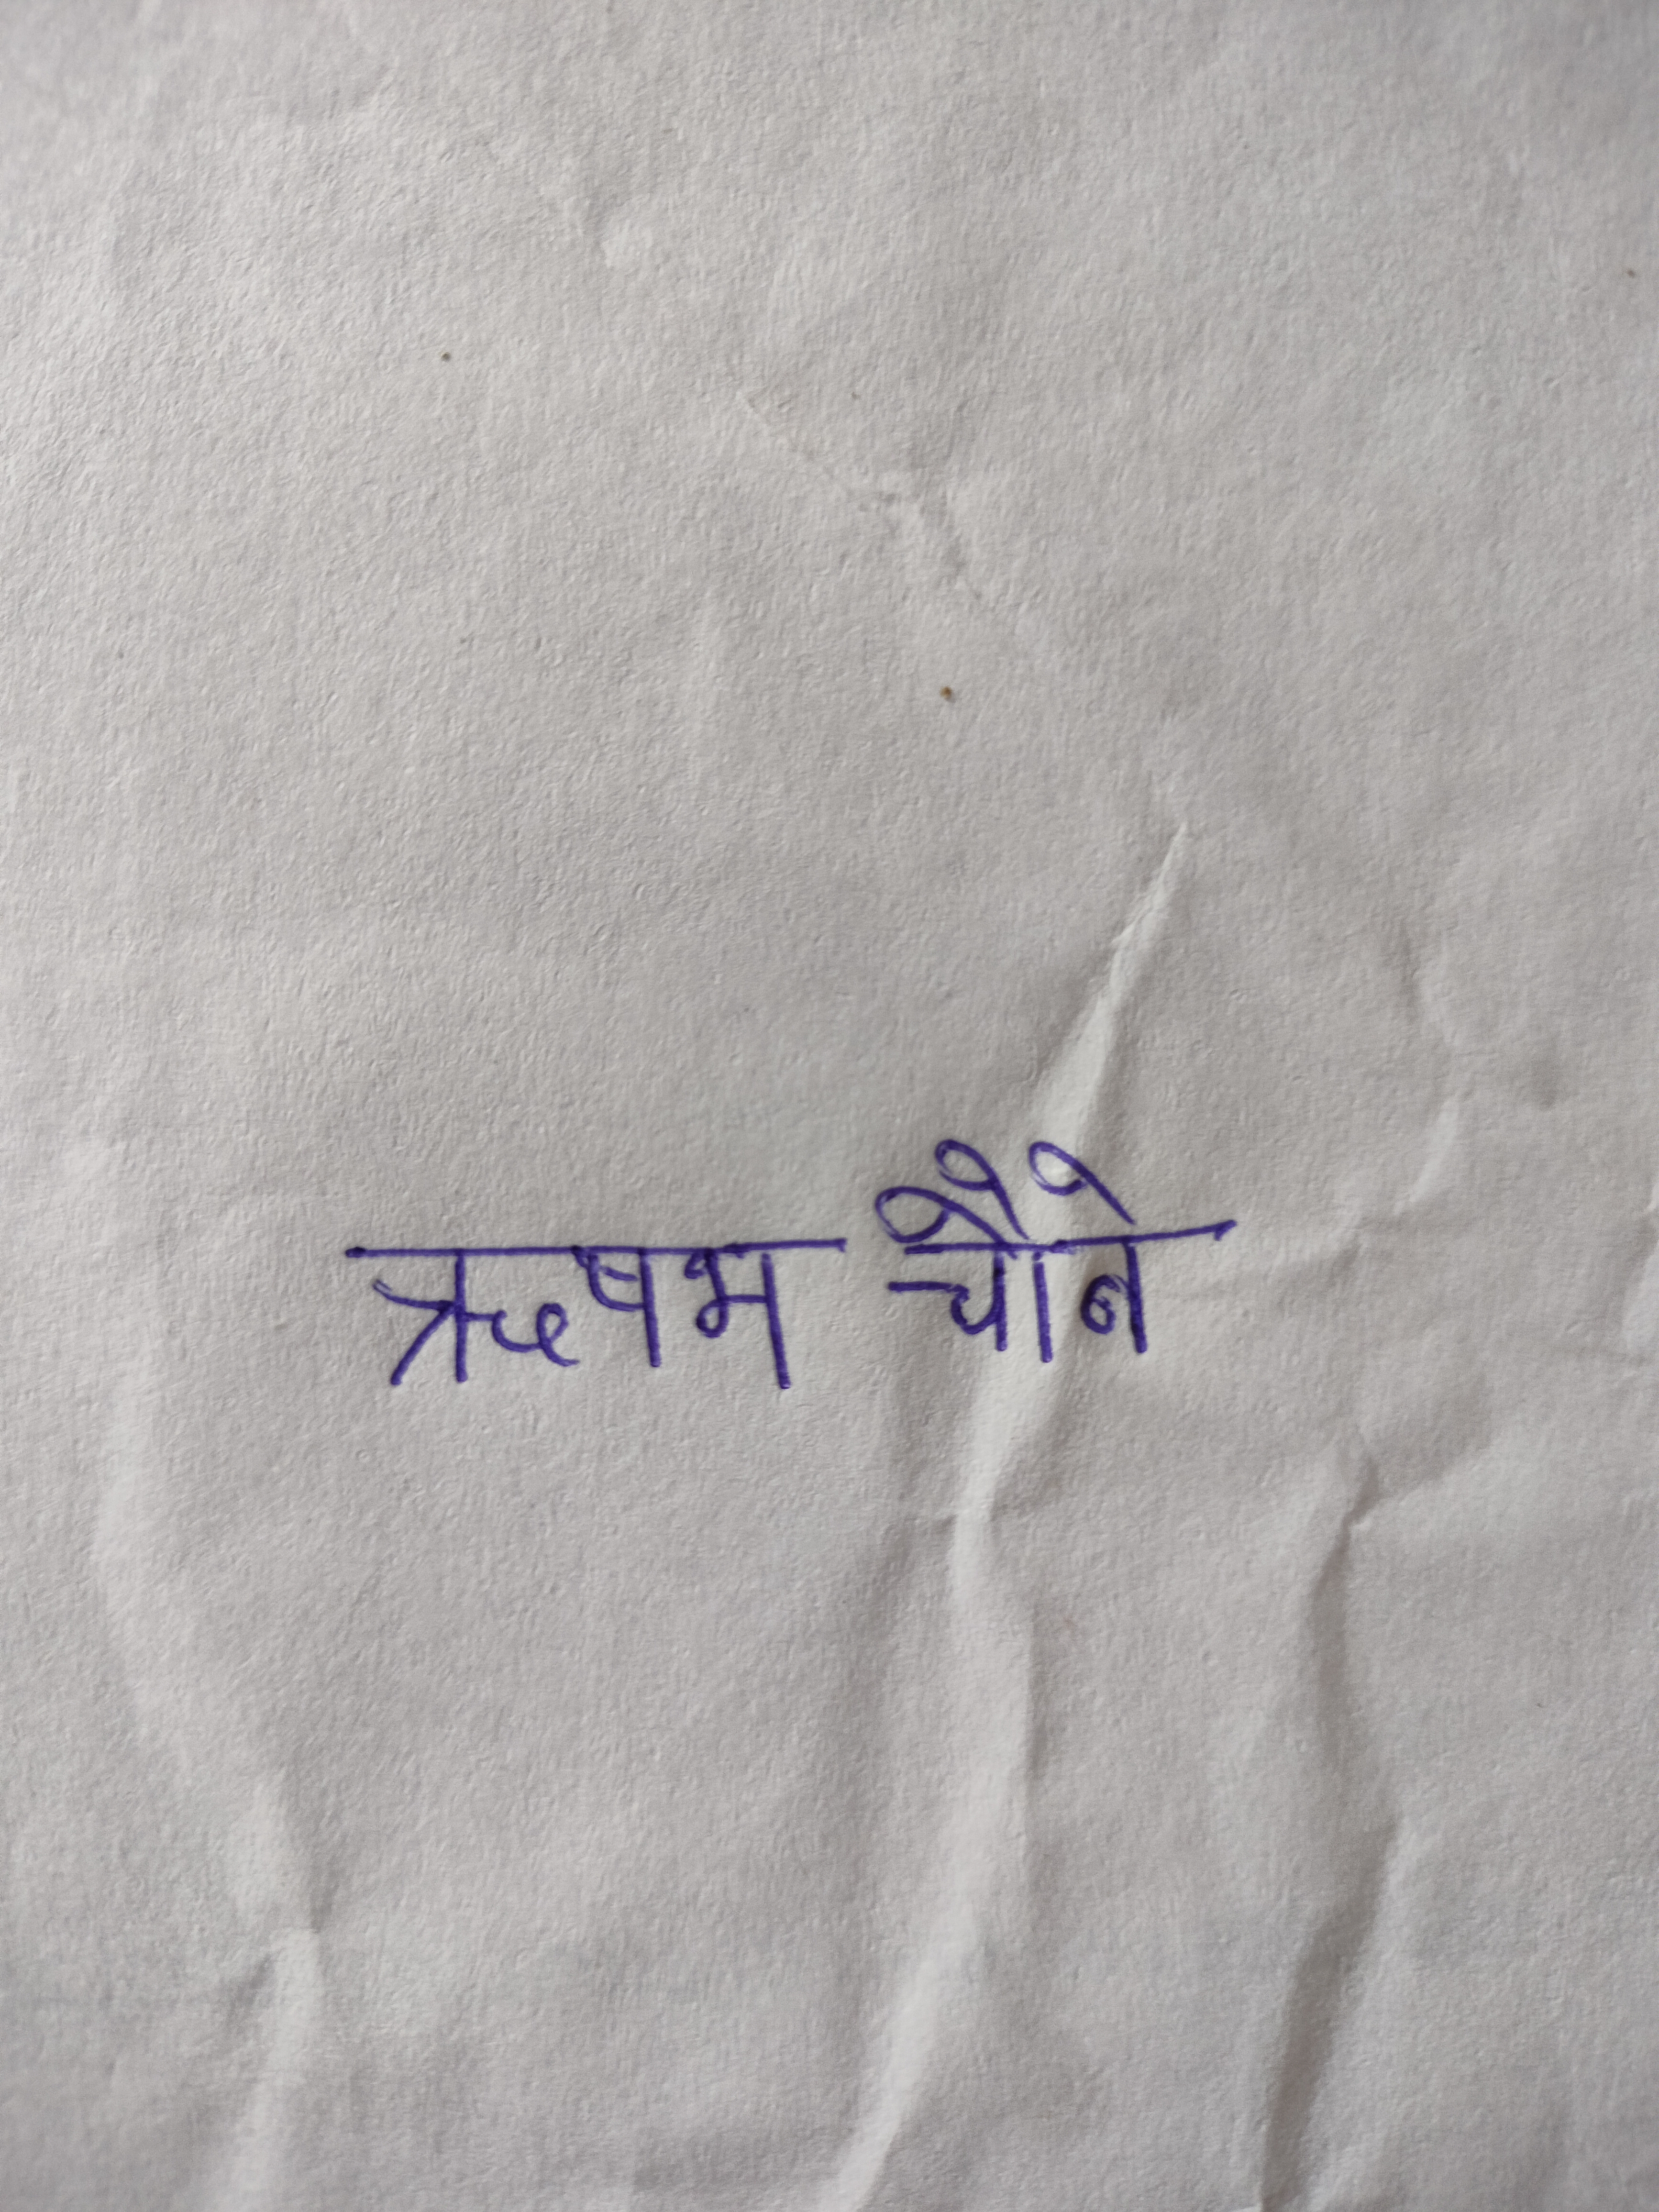 ऋषभ चौबे